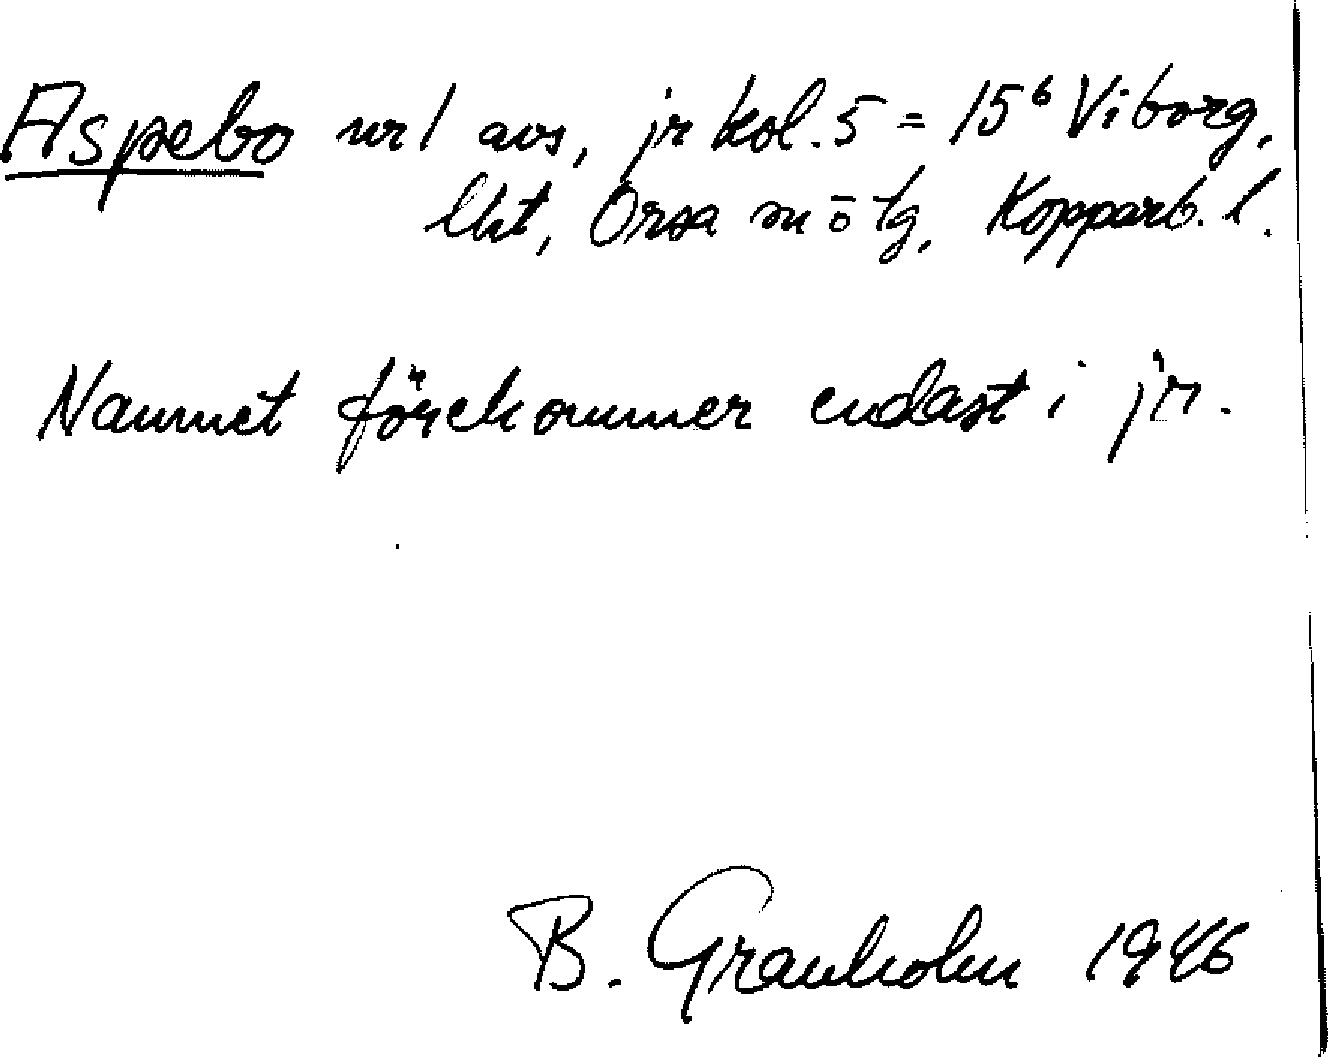 Aspebo nr 1 avs, jr kol. 5 = 15⁶ Viborg,
lht, Orsa sn o tg, Kopparb. l.
Namnet förekommer endast i jr.
B. Granholm 1946